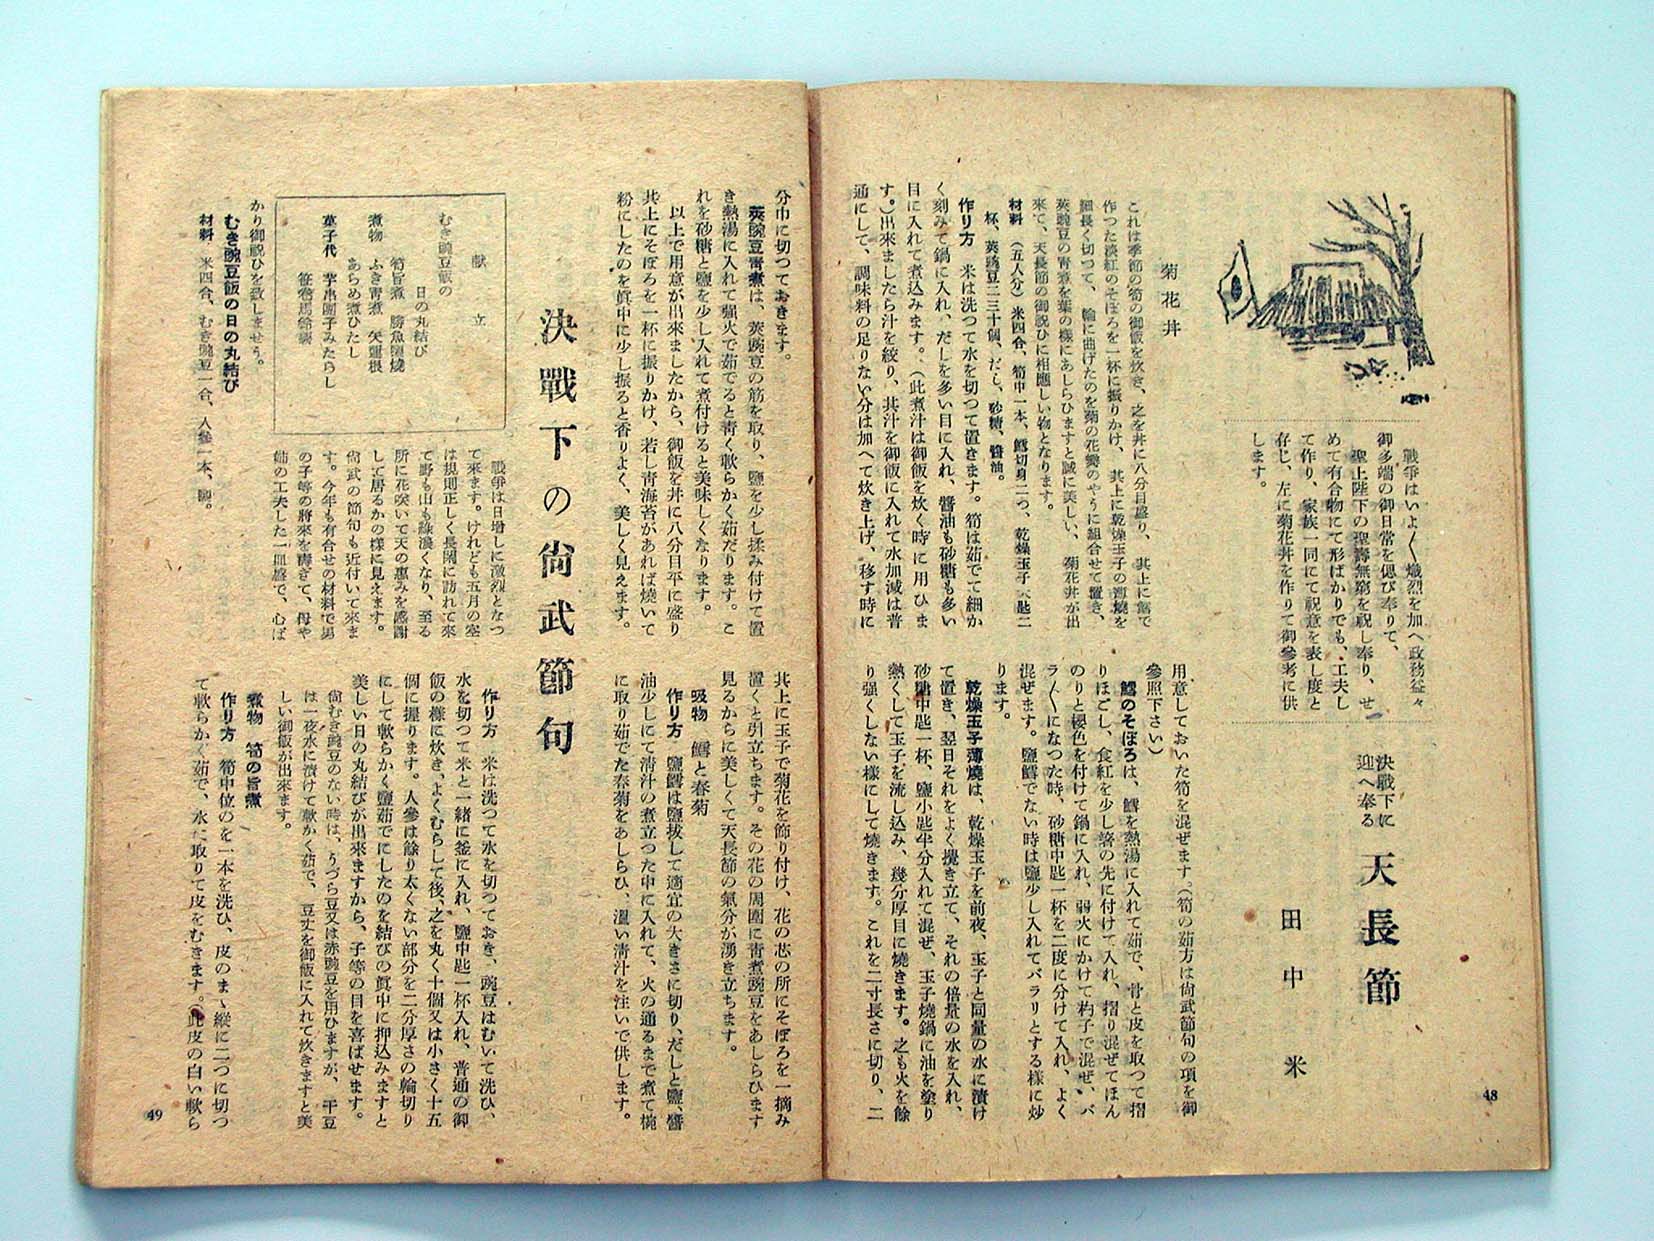 決戰下に
迎へ奉る
天長節
田中米
戰爭はいよ〱熾烈を加へ政務益々
御多端の御日常を偲び奉りて、
聖上陛下の聖壽無窮を祝し奉り、せ
めて有合物にて形ばかりでも、工夫し
て作り、家族一同にて祝意を表し度と
存じ、左に菊花丼を作りて御參考に供
します。
菊花丼
これは季節の筍の御飯を炊き、之を丼に八分目盛り、其上に鱈で
作つた淡紅のそぼろを一杯に振りかけ、其上に乾燥玉子の薄燒を
細長く切つて、輪に曲げたのを菊の花瓣のやうに組合せて置き、
莢豌豆の靑煮を葉の樣にあしらひますと誠に美しい、菊花丼が出
來て、天長節の御祝ひに相應しい物となります。
材料 (五人分)米四合、筍中一本、鱈切身二つ、乾燥玉子大匙二
杯、莢豌豆二三十個、だし、砂糖、醬油。
作り方 米は洗つて水を切つて置きます。筍は茹でて細か
く刻みて鍋に入れ、だしを多い目に入れ、醬油も砂糖も多い
目に入れて煮込みます。(此煮汁は御飯を炊く時に用ひま
す。)出來ましたら汁を絞り、其汁を御飯に入れて水加減は普
通にして、調味料の足りない分は加へて炊き上げ、移す時に
用意しておいた筍を混ぜます。(筍の茹方は尙武節句の項を御
參照下さい)
鱈のそぼろは、鱈を熱湯に入れて茹で、骨と皮を取つて摺
りほごし、食紅を少し箸の先に付けて入れ、摺り混ぜてほん
のりと櫻色を付けて鍋に入れ、弱火にかけて杓子で混ぜ、バ
ラ〱になつた時、砂糖中匙一杯を二度に分けて入れ、よく
混ぜます。鹽鱈でない時は鹽少し入れてバラリとする樣に炒
ります。
乾燥玉子薄燒は、乾燥玉子を前夜、玉子と同量の水に漬け
て置き、翌日それをよく攪き立て、それの倍量の水を入れ、
砂糖中匙一杯、鹽小匙半分入れて混ぜ、玉子燒鍋に油を塗り
熱くして玉子を流し込み、幾分厚目に燒きます。之も火を餘
り强くしない樣にして燒きます。これを二寸長さに切り、二
48
分巾に切つておきます。
莢豌豆靑煮は、莢豌豆の筋を取り、鹽を少し揉み付けて置
き熱湯に入れて强火で茹でると靑く軟らかく茹だります。こ
れを砂糖と鹽を少し入れて煮付けると美味しくなります。
以上で用意が出來ましたから、御飯を丼に八分目平に盛り
其上にそぼろを一杯に振りかけ、若し靑海苔があれば燒いて
粉にしたのを眞中に少し振ると香りよく、美しく見えます。
其上に玉子で菊花を飾り付け、花の芯の所にそぼろを一摘み
置くと引立ちます。その花の周圍に靑煮豌豆をあしらひます
見るからに美しくて天長節の氣分が湧き立ちます。
吸物 鱈と春菊
作り方 鹽鱈は鹽拔して適宜の大きさに切り、だしと鹽、醬
油少しにて淸汁の煮立つた中に入れて、火の通るまで煮て椀
に取り茹でた春菊をあしらひ、溫い淸汁を注いで供します。
決戰下の尙武節句
戰爭は日增しに激烈となつ
て來ます。けれども五月の空
は規則正しく長閑に訪れて來
て野も山も綠濃くなり、至る
所に花咲いて天の惠みを感謝
して居るかの樣に見えます。
尙武の節句も近付いて來ま
す。今年も有合せの材料で男
の子等の將來を壽ぎて、母や
姉の工夫した一皿盛で、心ば
獻立
むき豌豆飯の
日の丸結び
筍旨煮 勝魚鹽燒
煮物 ふき靑煮 矢蓮根
あらめ煮びたし
菓子代 芋串團子みたらし
笹卷馬鈴薯
かり御祝ひを致しませう。
むき豌豆飯の日の丸結び
材料 米四合、むき豌豆一合、人參一本、鹽。
作り方 米は洗つて水を切つておき、豌豆はむいて洗ひ、
水を切つて米と一緖に釜に入れ、鹽中匙一杯入れ、普通の御
飯の樣に炊き、よくむらして後、之を丸く十個又は小さく十五
個に握ります。人參は餘り太くない部分を二分厚さの輪切り
にして軟らかく鹽茹でにしたのを結びの眞中に押込みますと
美しい日の丸結びが出來ますから、子等の目を喜ばせます。
尙むき豌豆のない時は、うづら豆又は赤豌豆を用ひますが、干豆
は一夜水に漬けて軟かく茹で、豆丈を御飯に入れて炊きますと美
しい御飯が出來ます。
煮物 筍の旨煮
作り方 筍中位のを一本を洗ひ、皮のまゝ縱に二つに切つ
て軟らかく茹で、水に取りて皮をむきます。(此皮の白い軟ら
49